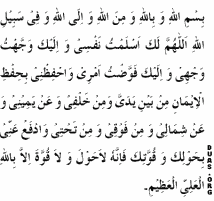 بِسْمِ اللهِ وَ بِاللهِ وَ مِنَ اللهِ وَ اِلَى اللهِ وَ فِىْ سَبِيْلِ
اللهِ اَللّٰهُمَّ لَكَ اَسْلَمْتُ نَفْسِىْ وَ اِلَيْكَ وَجَّهْتُ
وَجْهِىْ وَ اِلَيْكَ فَوَّضْتُ اَمْرِىْ وَاحْفَظْنِىْ بِحِفْظِ
الْاِيْمَانِ مِنْ بَيْنِ يَدَىَّ وَمِنْ خَلْفِىْ وَ عَنْ يَمِيْنِىْ وَ
عَنْ شِمَالِىْ وَ مِنْ فَوْقِىْ وَ مِنْ تَحْتِىْ وَادْفَعْ عَنِّىْ
بِحَوْلِكَ وَ قُوَّتِكَ فَاِنَّهٗ لَاحَوْلَ وَ لَا قُوَّةَ اِلاَّ بِاللهِ
الْعَلِىِّ الْعَظِيْمِ.
DUAS.ORG